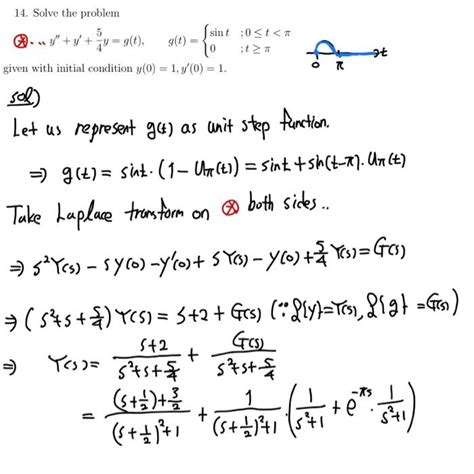 14. Solve the problem
⊛... y'' + y' + 5/4 y = g(t),    g(t) = { sin t ; 0 ≤ t < π
0 ; t ≥ π
0 π t
given with initial condition y(0) = 1, y'(0) = 1.
sol)
Let us represent g(t) as unit step function.
⇒ g(t) = sint·(1 − Uπ(t)) = sint + sin(t−π)·Uπ(t)
Take Laplace transform on ⊛ both sides..
⇒ s²Y(s) − sy(0) − y'(0) + sY(s) − y(0) + 5/4 Y(s) = G(s)
⇒ (s²+s+5/4) Y(s) = s+2 + G(s) (∵ ℒ{y} = Y(s), ℒ{g} = G(s))
⇒ Y(s) = (s+2)/(s²+s+5/4) + G(s)/(s²+s+5/4)
= ((s+1/2)+3/2)/((s+1/2)²+1) + 1/((s+1/2)²+1) · (1/(s²+1) + e^(−πs) · 1/(s²+1))